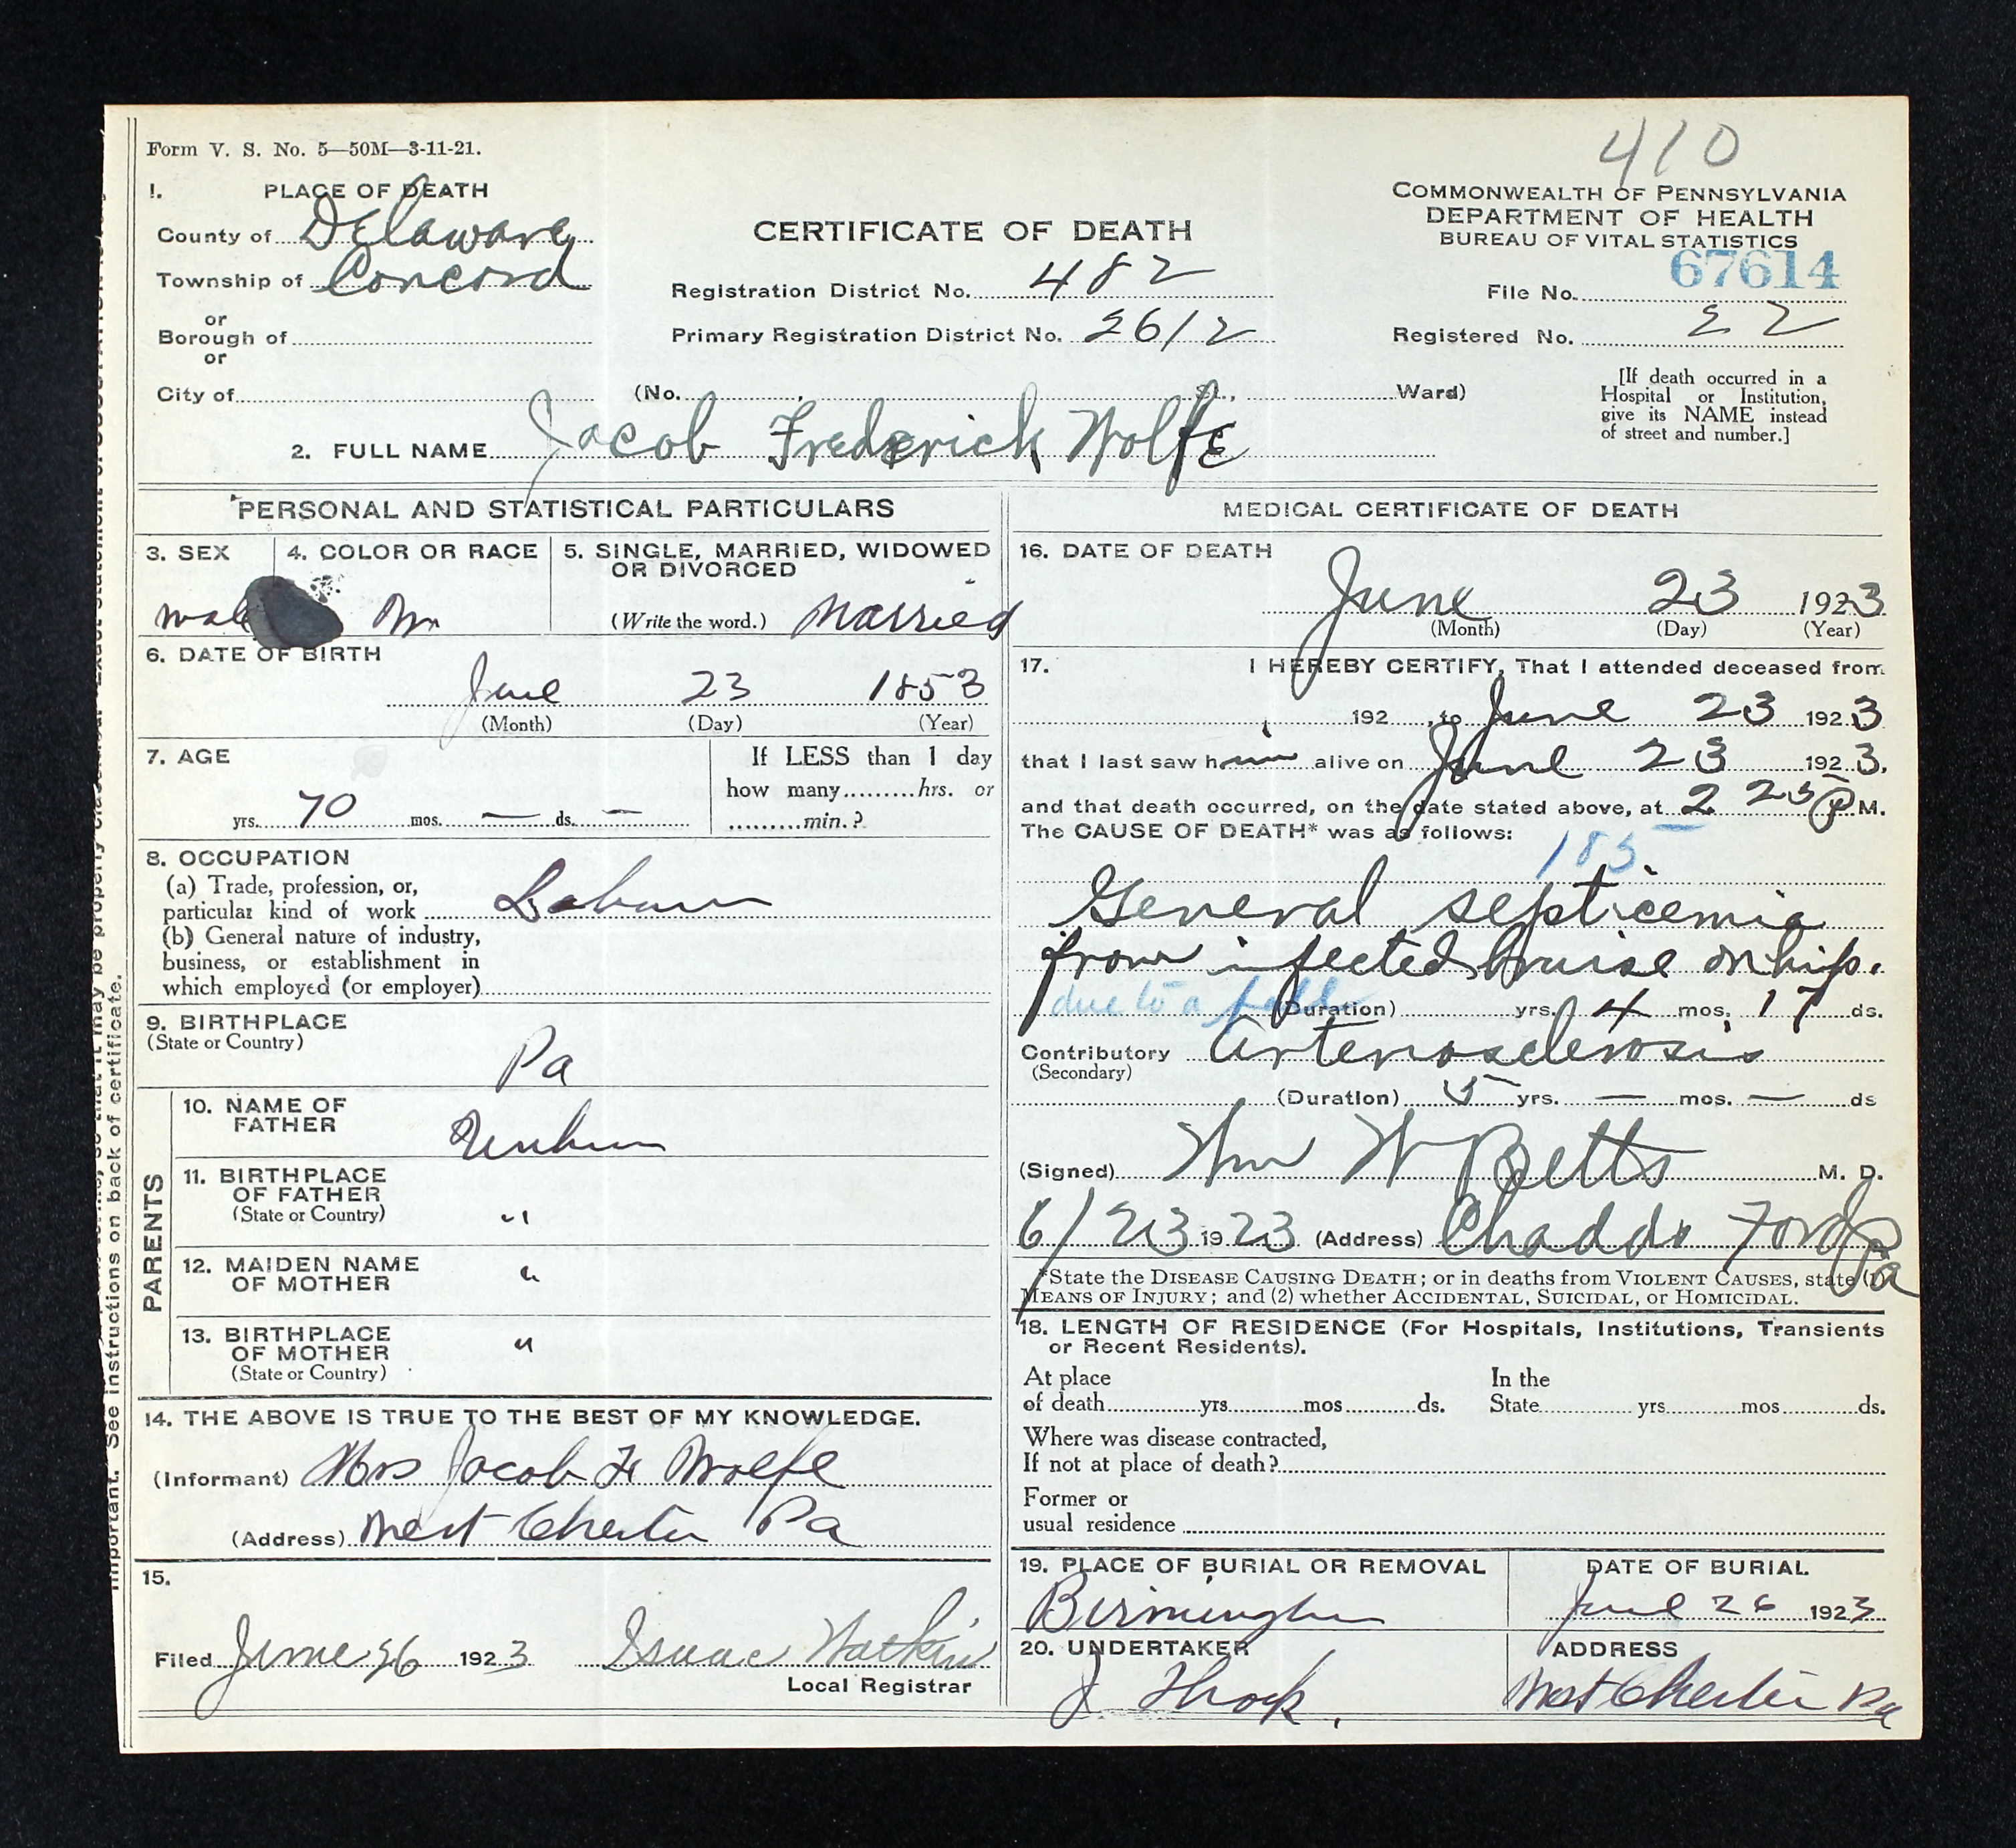 410
Form V. S. No. 5—50M—3-11-21.
1. PLACE OF DEATH
County of Delaware
Township of Concord
or
Borough of
or
City of
CERTIFICATE OF DEATH
Registration District No. 482
Primary Registration District No. 2612
(No. , St., Ward)
COMMONWEALTH OF PENNSYLVANIA
DEPARTMENT OF HEALTH
BUREAU OF VITAL STATISTICS
67614
File No.
Registered No. 22
[If death occurred in a
Hospital or Institution,
give its NAME instead
of street and number.]
2. FULL NAME Jacob Frederick Wolfe
PERSONAL AND STATISTICAL PARTICULARS
3. SEX
male
4. COLOR OR RACE
W
5. SINGLE, MARRIED, WIDOWED
OR DIVORCED
(Write the word.) Married
6. DATE OF BIRTH
June 23 1853
(Month) (Day) (Year)
7. AGE
70 yrs. — mos. — ds.
If LESS than 1 day
how many hrs. or
min.?
8. OCCUPATION
(a) Trade, profession, or,
particular kind of work Laborer
(b) General nature of industry,
business, or establishment in
which employed (or employer)
9. BIRTHPLACE
(State or Country)
Pa
PARENTS
10. NAME OF
FATHER
11. BIRTHPLACE
OF FATHER
(State or Country) "
12. MAIDEN NAME
OF MOTHER "
13. BIRTHPLACE
OF MOTHER "
(State or Country)
14. THE ABOVE IS TRUE TO THE BEST OF MY KNOWLEDGE.
(Informant) Mrs Jacob F Wolfe
(Address) West Chester Pa
15.
Filed June 26 1923 Isaac Watkin
Local Registrar
MEDICAL CERTIFICATE OF DEATH
16. DATE OF DEATH
June 23 1923
(Month) (Day) (Year)
17. I HEREBY CERTIFY, That I attended deceased from
192 , to June 23 1923
that I last saw him alive on June 23 1923,
and that death occurred, on the date stated above, at 2 23 P M.
The CAUSE OF DEATH* was as follows:
185
General septicemia
from infected bruise on hip.
due to a fall (Duration) yrs. 4 mos. 17 ds.
Contributory Arteriosclerosis
(Secondary)
(Duration) 5 yrs. — mos. — ds
(Signed) Wm W Betts M. D.
6/23 1923 (Address) Chadds Ford Pa
*State the DISEASE CAUSING DEATH; or in deaths from VIOLENT CAUSES, state (1)
MEANS OF INJURY; and (2) whether ACCIDENTAL, SUICIDAL, or HOMICIDAL.
18. LENGTH OF RESIDENCE (For Hospitals, Institutions, Transients
or Recent Residents).
At place
of death yrs mos ds.
In the
State yrs mos ds.
Where was disease contracted,
If not at place of death?
Former or
usual residence
19. PLACE OF BURIAL OR REMOVAL
Birmingham
DATE OF BURIAL
June 26 1923
20. UNDERTAKER
J
ADDRESS
West Chester Pa
important. See instructions on back of certificate.